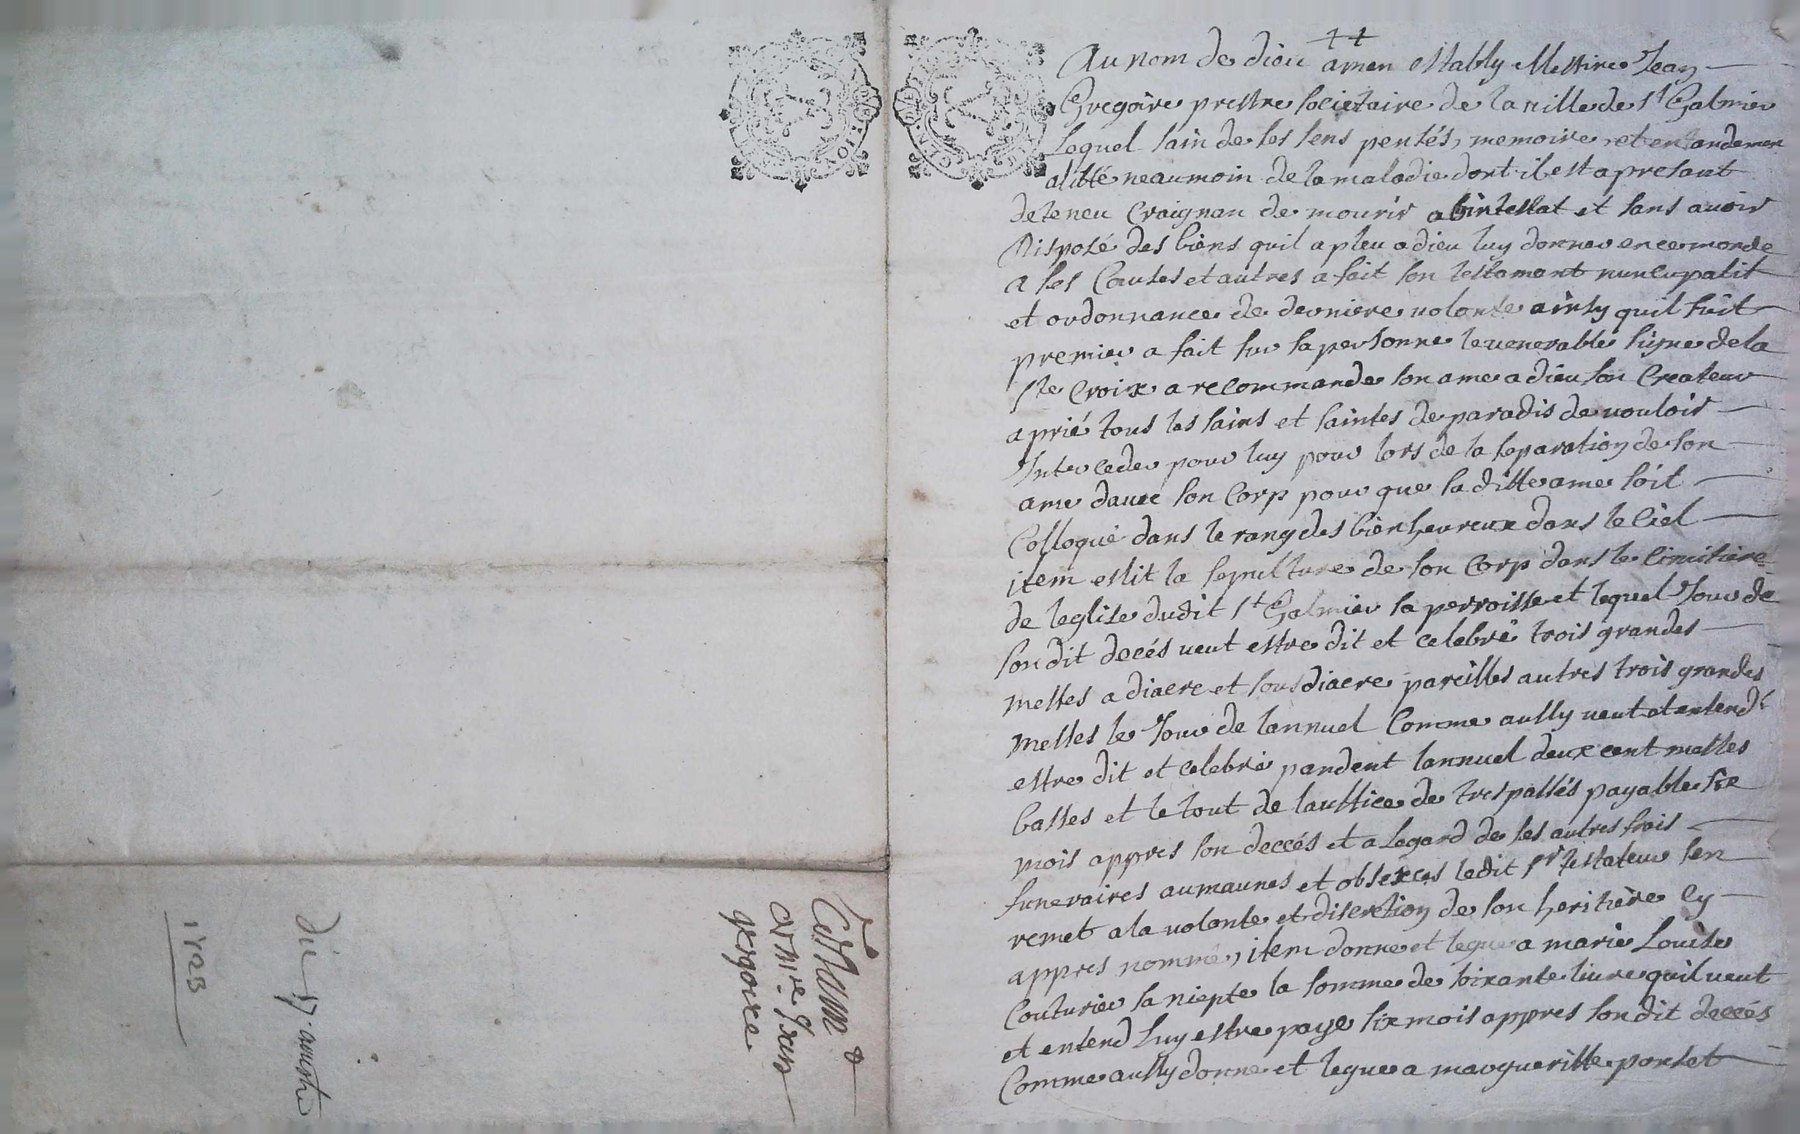 Au nom de dieu amen estably Messire Jean
Gregoire prestre societaire de la ville de St Galmier
Lequel sain de ses sens pensés, memoire, et entandemen
alitté neaumoin de la maladie dont il est apresant
deteneu Craignan de mourir abintestat et sans avoir
disposé des biens quil a pleu a dieu luy donner en ce monde
a ses Causes et autres a fait son testamant nuncupatif
et ordonnance de derniere volonte ainsy quil suit
premier a fait sur sa personne le venerable signe de la
ste Croix a recommande son ame a dieu son Createur
a prié tous les sains et saintes de paradis de vouloir
Interceder pour luy pour lors de la separation de son
ame davec son Corp pour que sa ditte ame soit
Colloqué dans le rang des bienheureux dans le Ciel
item eslit la sepulture de son Corp dans le Cimitiere
de leglise dudit St Galmier sa perroisse et lequel Jour de
son dit decés veut estre dit et celebré trois grandes
messes a diacre et sousdiacre pareilles autres trois grandes
messes le Jour de lannuel Comme aussy veut et entend
estre dit et celebré pandent lannuel deux cent messes
basses et le tout de laustice de trespassés payable six
mois appres son deccés et a legard de ses autres frais
funeraires aumaunes et obseces ledit sr testateur sen
remet a la volonte et discretion de son heritière cy
appres nommé, item donne et legue a marie Louise
Couturier sa niepte la somme de soixante livre quil veut
et entend luy estre paye six mois appres son dit deccés
Comme aussy donne et legue a margueritte ponset
Testam
de Mre Jean
gregoire
du 17 
1723